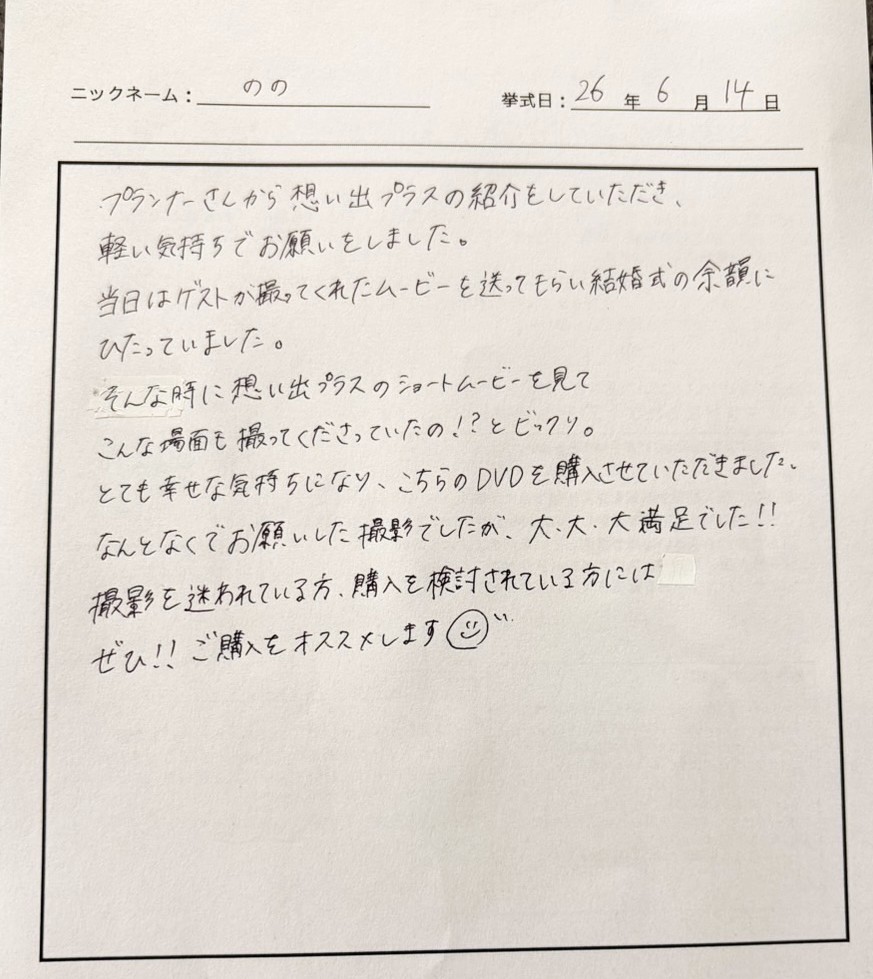 ニックネーム： のの
挙式日： 26 年 6 月 14 日
プランナーさんから想い出プラスの紹介をしていただき、
軽い気持ちでお願いをしました。
当日はゲストが撮ってくれたムービーを送ってもらい結婚式の余韻に
ひたっていました。
そんな時に想い出プラスのショートムービーを見て
こんな場面も撮ってくださっていたの!?とビックリ。
とても幸せな気持ちになり、こちらのDVDを購入させていただきました。
なんとなくでお願いした撮影でしたが、大・大・大満足でした!!
撮影を迷われている方、購入を検討されている方には
ぜひ!! ご購入をオススメします☺